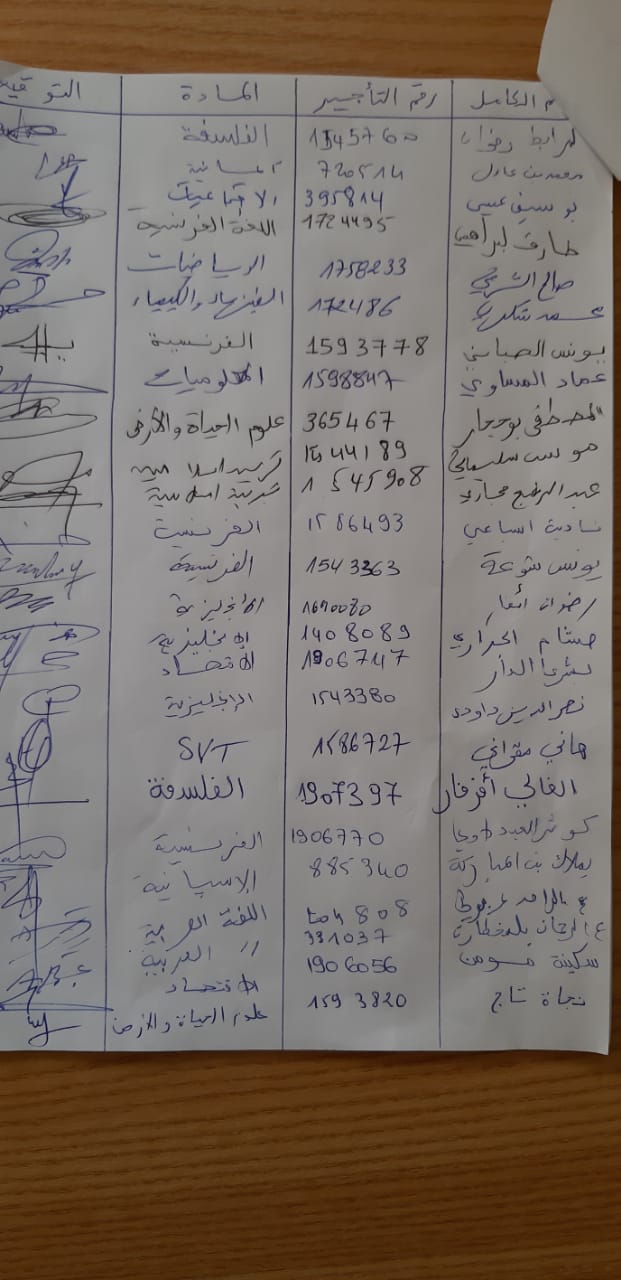 م الكامل رقم التأجير المادة التوقيع
لمرابط رضوان 1545760 الفلسفة
محمد بن عادل 720514
بوسيف عيسى 395814 الاجتماعيات
طارق لبراهمي 1724495 اللغة الفرنسية
صالح الشرعي 1758233 الرياضيات
محمد 172486 الفيزياء والكيمياء
يونس الصباني 1593778 الفرنسية
عماد العيساوي 1598847 المعلوميات
المصطفى بوحجار 365467 علوم الحياة والأرض
موسى سليماني 44189 تربية اسلامية
عبد الرفيع حجازي 1545908 تربية اسلامية
نادية اسباعي 1586493 الفرنسية
يونس شوعة 1543363 الفرنسية
رضوان 1690080 الانجليزية
هشام الحراري 1408089 الانجليزية
بشرى الدار 1906747 الاقتصاد
نصر الدين داودي 1543380 الإنجليزية
هاني مقراني 1586727 SVT
الغالي أقزقار 1907397 الفلسفة
كوثر العبدلاوي 1906770 الفرنسية
بنت المباركة 885340 الإسبانية
808 اللغة العربية
ع الرحمان بلمختارة 331037 // العربية
سكينة مومن 1906056 الاقتصاد
نجاة تاج 1593820 علوم الحياة والارض